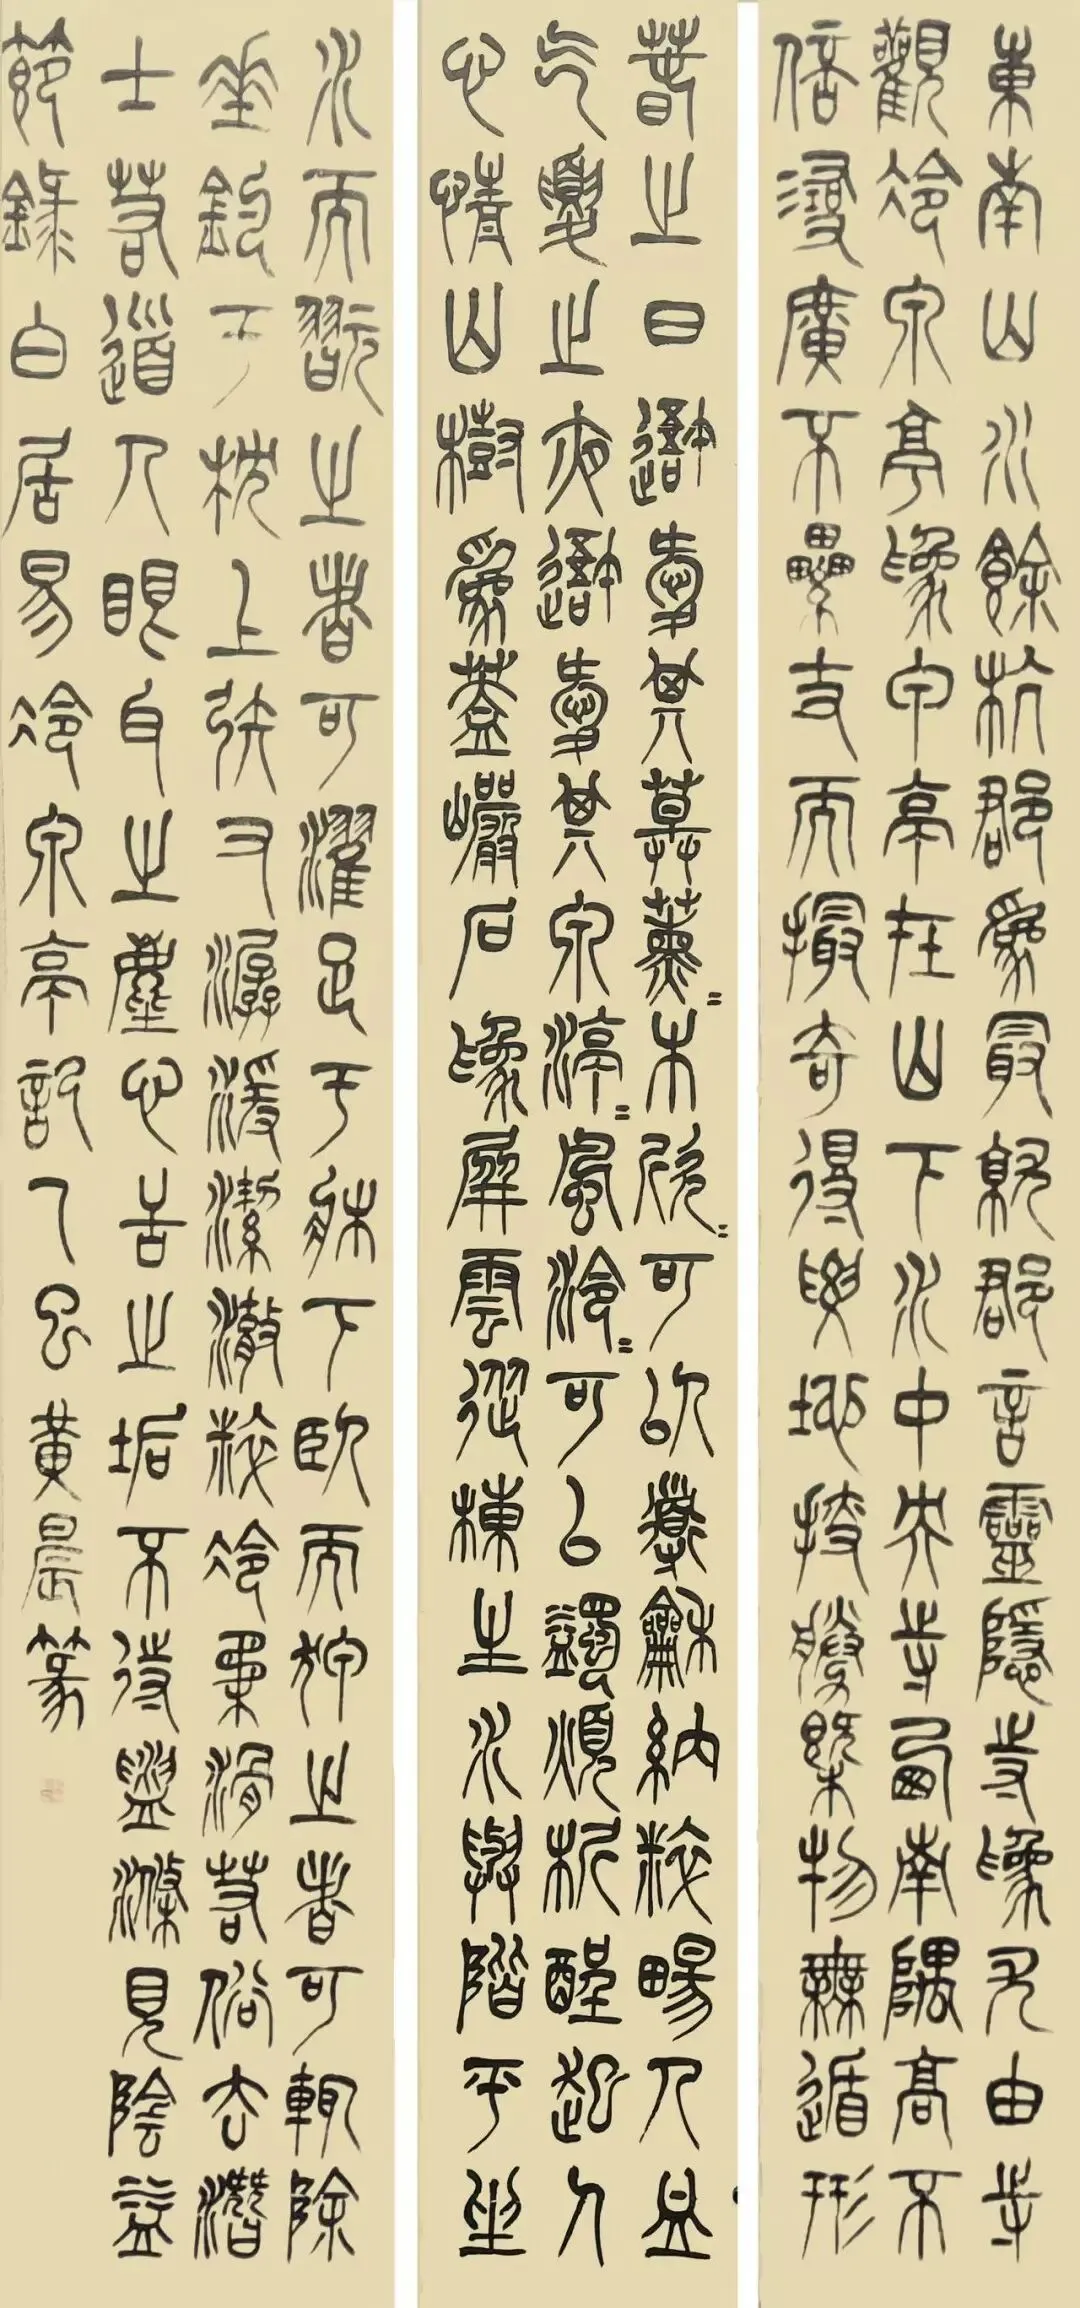 東南山水餘杭郡爲最就郡言靈隱寺爲尤由寺
觀冷泉亭爲甲亭在山下水中央寺西南隅高不
倍尋廣不累丈而撮奇得要地搜勝概物無遁形
春之日吾愛其草薰=木欣=可以導和納粹暢人血
气夏之夜吾愛其泉渟=風泠=可以蠲煩析酲起人
心情山樹爲蓋巖石爲屏雲從棟生水與階平坐
水而翫之者可濯足于牀下臥而狎之者可輒除
垂釣于枕上矧又潺湲潔澈粹冷柔滑若俗去潛
士若道人眼耳之塵心舌之垢不待盥滌見陰益
節錄白居易冷泉亭記乙巳黃晨篆